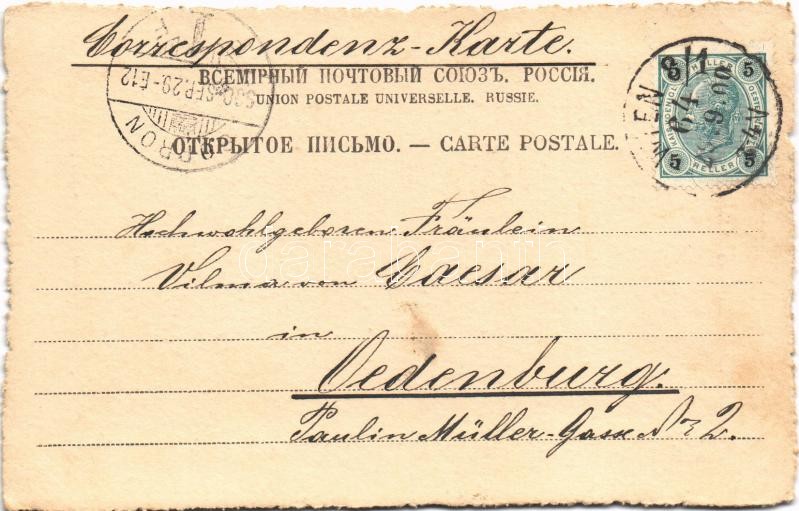 Correspondenz-Karte.
ВСЕМІРНЫЙ ПОЧТОВЫЙ СОЮЗЪ. РОССІЯ.
UNION POSTALE UNIVERSELLE. RUSSIE.
ОТКРЫТОЕ ПИСЬМО. — CARTE POSTALE.
SOPRON
SEP. 29
5 HELLER 5
5 HELLER 5
WIEN 8/1
64
9.00
Hochwohlgeboren Fräulein
Vilma von Caesar
in
Oedenburg.
Paulin Müller-Gasse № 2.
darabanth